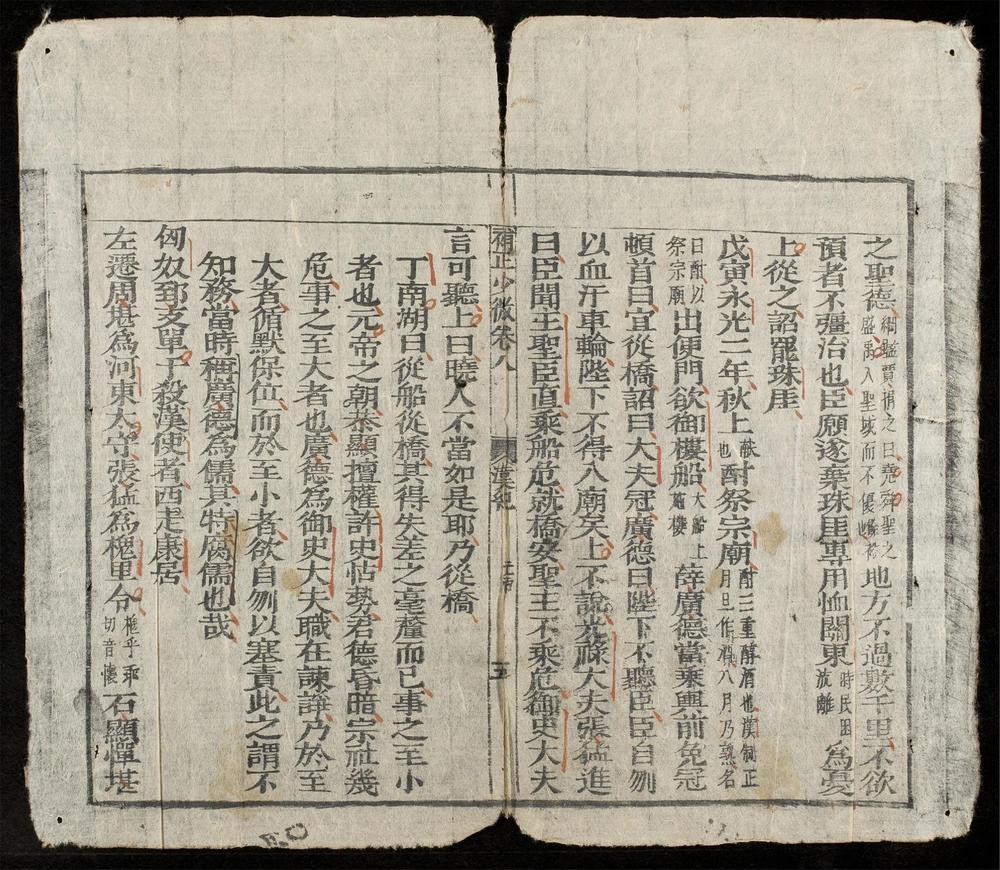 之聖德綱鑑賈捐之曰堯舜聖之盛禹入聖域而不優地方不過數千里不欲
預者不彊治也臣願遂棄珠厓專用恤關東時民困流離為憂
上從之詔罷珠厓
戊寅永光二年秋上酎祭宗廟酎三重醇酒也漢制正月旦作酒八月乃熟名
曰酎以祭宗廟出便門欲御樓船大船上施樓薛廣德當乘輿前免冠
頓首曰宜從橋詔曰大夫冠廣德曰陛下不聽臣臣自刎
以血汙車輪陛下不得入廟矣上不說光祿大夫張猛進
曰臣聞主聖臣直乘船危就橋安聖主不乘危御史大夫
補正少微卷八 漢紀 五
言可聽上曰曉人不當如是耶乃從橋
丁南湖曰從船從橋其得失差之毫釐而已事之至小
者也元帝之朝恭顯擅權許史怙勢君德昏暗宗社幾
危事之至大者也廣德為御史大夫職在諫諍乃於至
大者循默保位而於至小者欲自刎以塞責此之謂不
知務當時稱廣德為儒其特腐儒也哉
匈奴郅支單于殺漢使者西走康居
左遷周堪為河東太守張猛為槐里令槐乎乖切音懷石顯憚堪